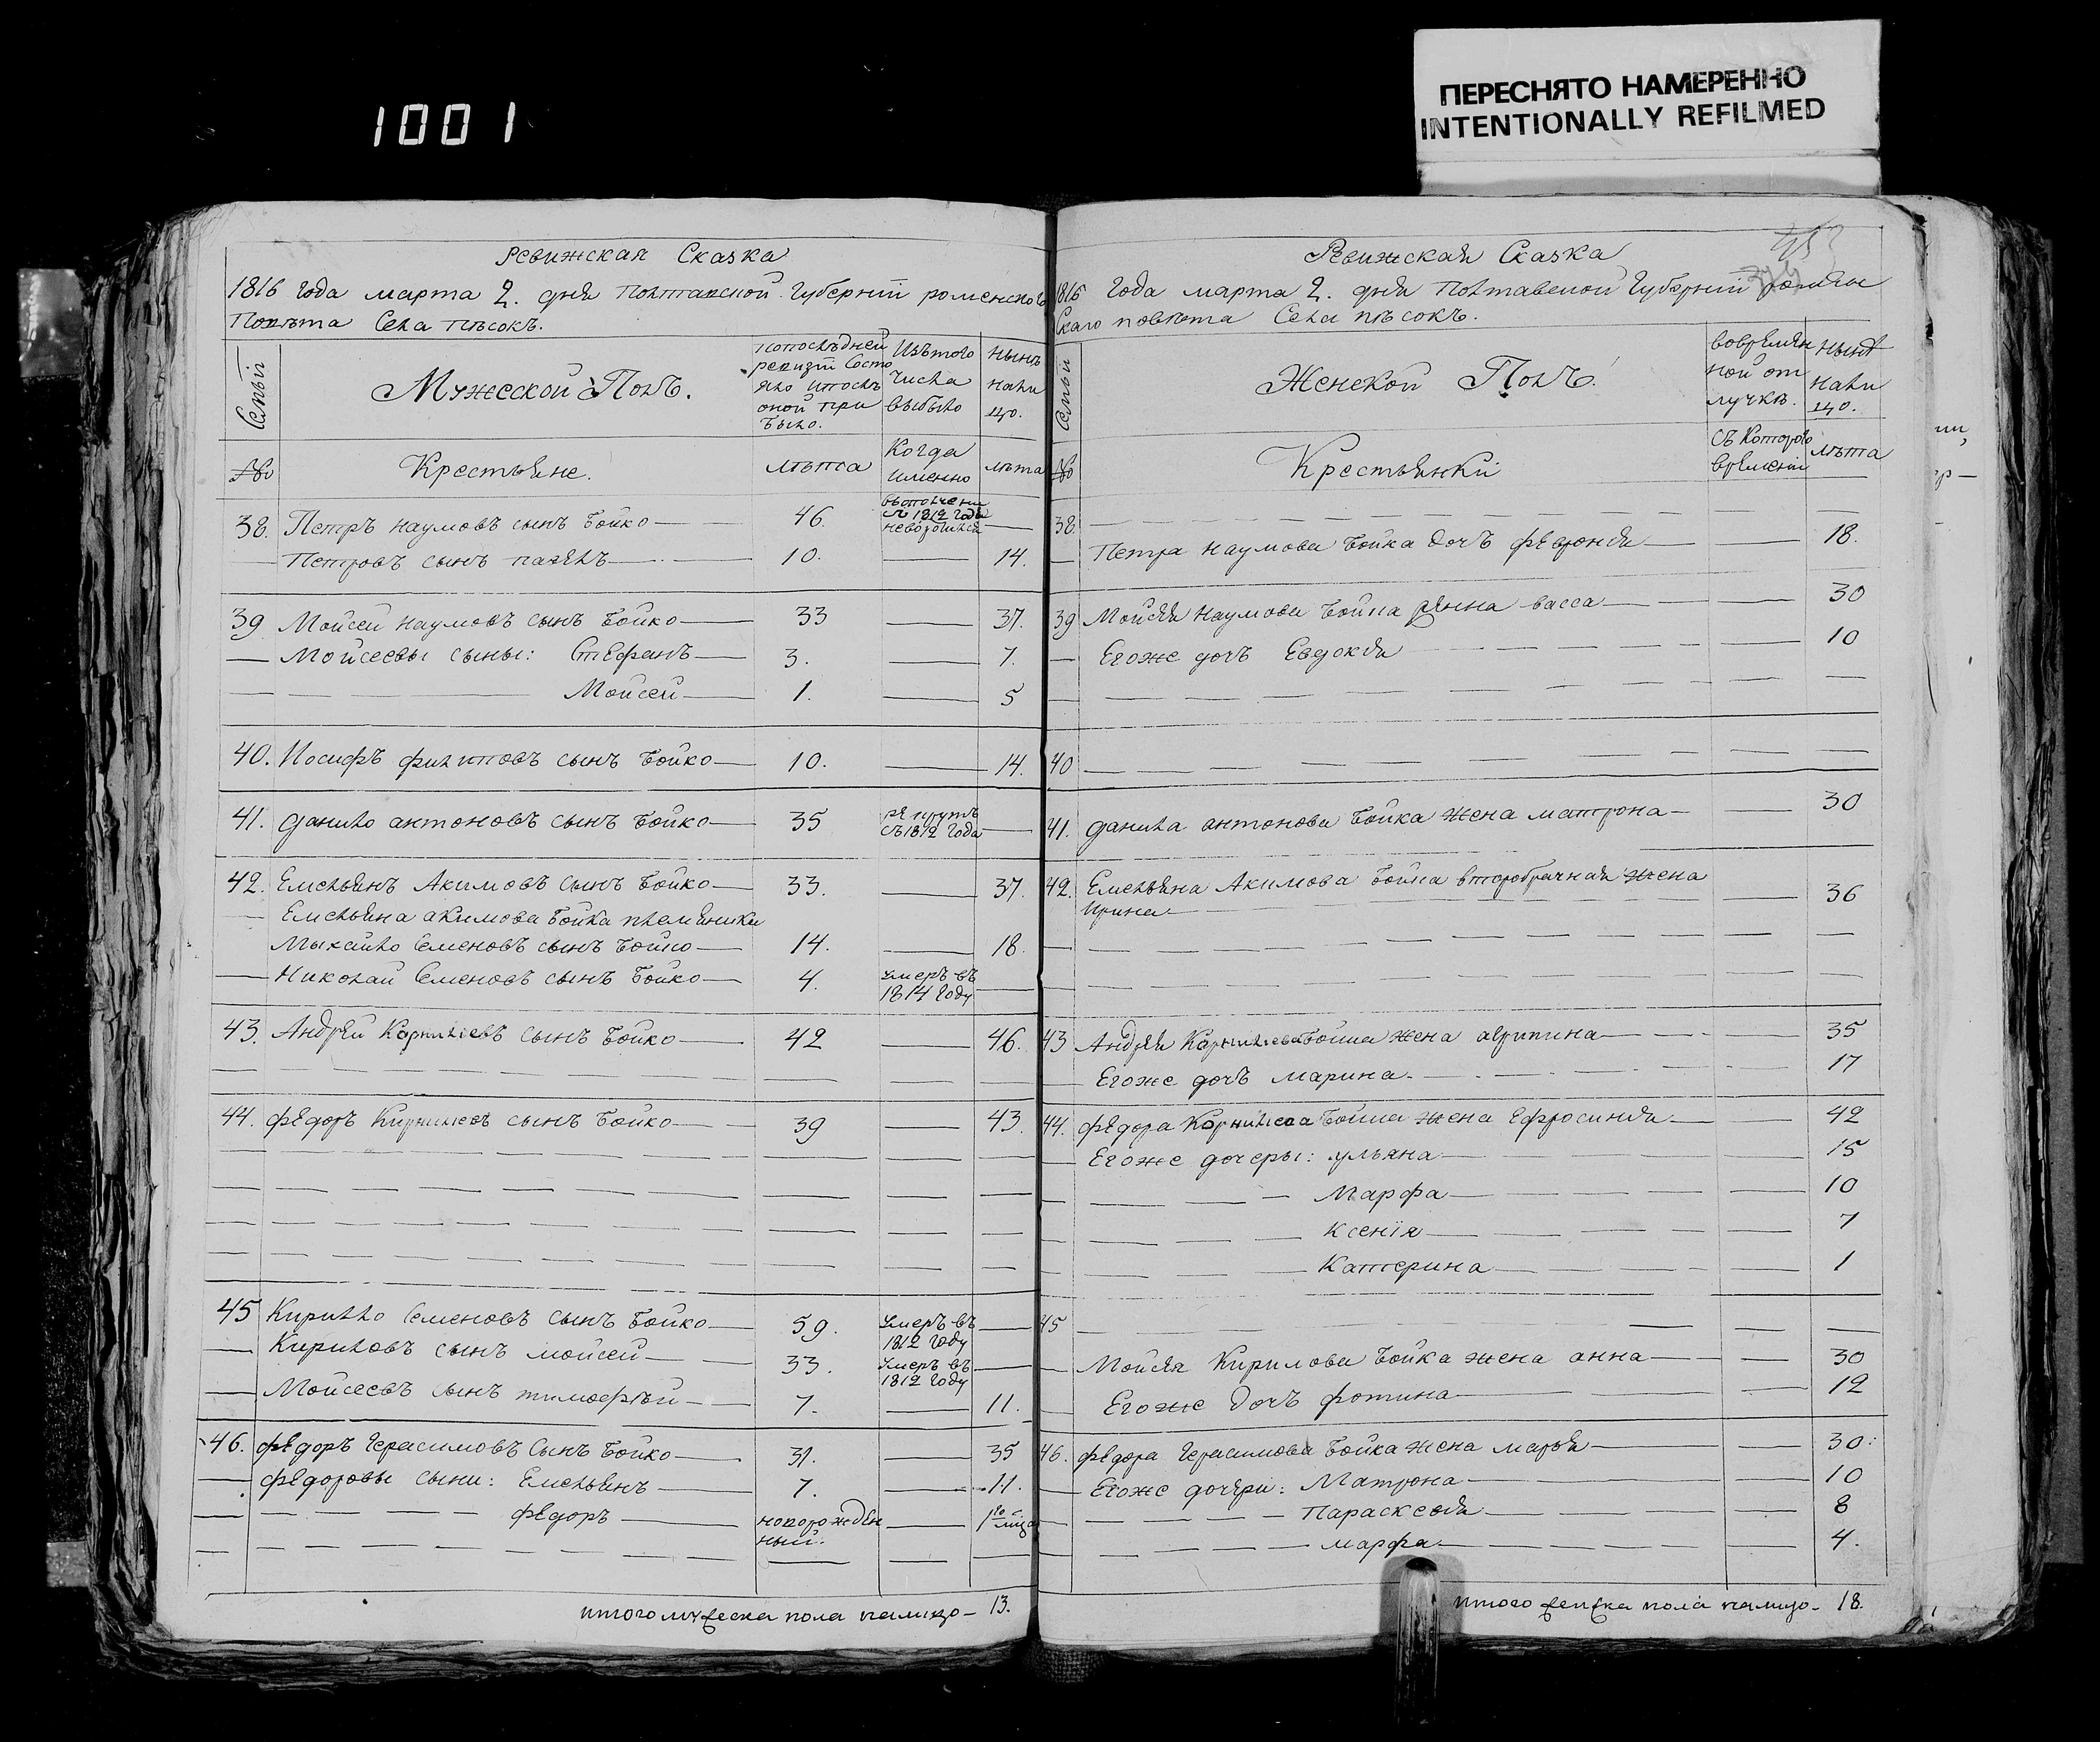 1001
ПЕРЕСНЯТО НАМЕРЕННО
INTENTIONALLY REFILMED
Ревижская Сказка
1816 года марта 2. дня Полтавской Губерніи роменского
Повѣта Села пѣсокъ.
Семьи
Мужеской Полъ.
попослѣдней
ревизіи состо
яло ипослѣ
оной при
было.
Изътого
числа
выбыло
нынѣ
нали
цо.
№
Крестьяне.
лѣта
Когда
именно
лѣта
38. Петръ наумовъ сынъ Бойко 46. въополчени
съ 1812 года
Петровъ сынъ павелъ 10. 14.
39 Мойсей наумовъ сынъ Бойко 33 37.
Мойсеевы сыны: Стефанъ 3. 7.
Мойсей 1. 5
40. Иосифъ филиповъ сынъ Бойко 10. 14.
41. данило антоновъ сынъ Бойко 35 рекрутъ
съ1812 года
42. Емельянъ Акимовъ сынъ Бойко 33. 37.
Емельяна акимова Бойка племяники
Михайло Семеновъ сынъ Бойко 14. 18.
Николай Семеновъ сынъ Бойко 4. умеръ въ
1814 году
43. Андрей Корнилиевъ сынъ Бойко 42 46.
44. федоръ Кирнилиевъ сынъ Бойко 39 43.
45 Кирилло Семеновъ сынъ Бойко 59. умеръ въ
1812 году
Кириловъ сынъ мойсей 33. умеръ въ
1812 году
Мойсеевъ сынъ тимофѣй 7. 11.
46. федоръ Герасимовъ сынъ Бойко 31. 35
федоровы сыни: Емельянъ 7. 11.
федоръ новорожден
ный.
итого мужеска пола налицо 13.
Ревижская Сказка
1816 года марта 2. дня Полтавской Губерніи ромен
скаго повѣта Села пѣсокъ.
Семьи
Женской Полъ.
вовремян
ной от
лучкѣ.
нынѣ
нали
цо.
№
Крестьянки
съ Которого
времени
лѣта
38.
Петра наумова Бойка дочъ февронія 18.
39 Мойсея наумова Бойка жинка васса 30
Егоже дочъ Евдокія 10
40
41. данила антонова Бойка жена матрона 30
42. Емельяна Акимова Бойка второбрачная жена
Ирина 36
43 Андрея Корнилиева Бойка жена агрипина 35
Егоже дочъ марина. 17
44. федора Корнилиева Бойка жена Ефросинія 42
Егоже дочеры: ульяна 15
Марфа 10
Ксенія 7
Катерина 1
45
Мойсея Кирилова Бойка жена анна 30
Егоже дочъ фотина 12
46. федора Герасимова Бойка жена марья 30:
Егоже дочери: Матрона 10
Параскевія 8
марфа 4.
итого женска пола налицо 18.